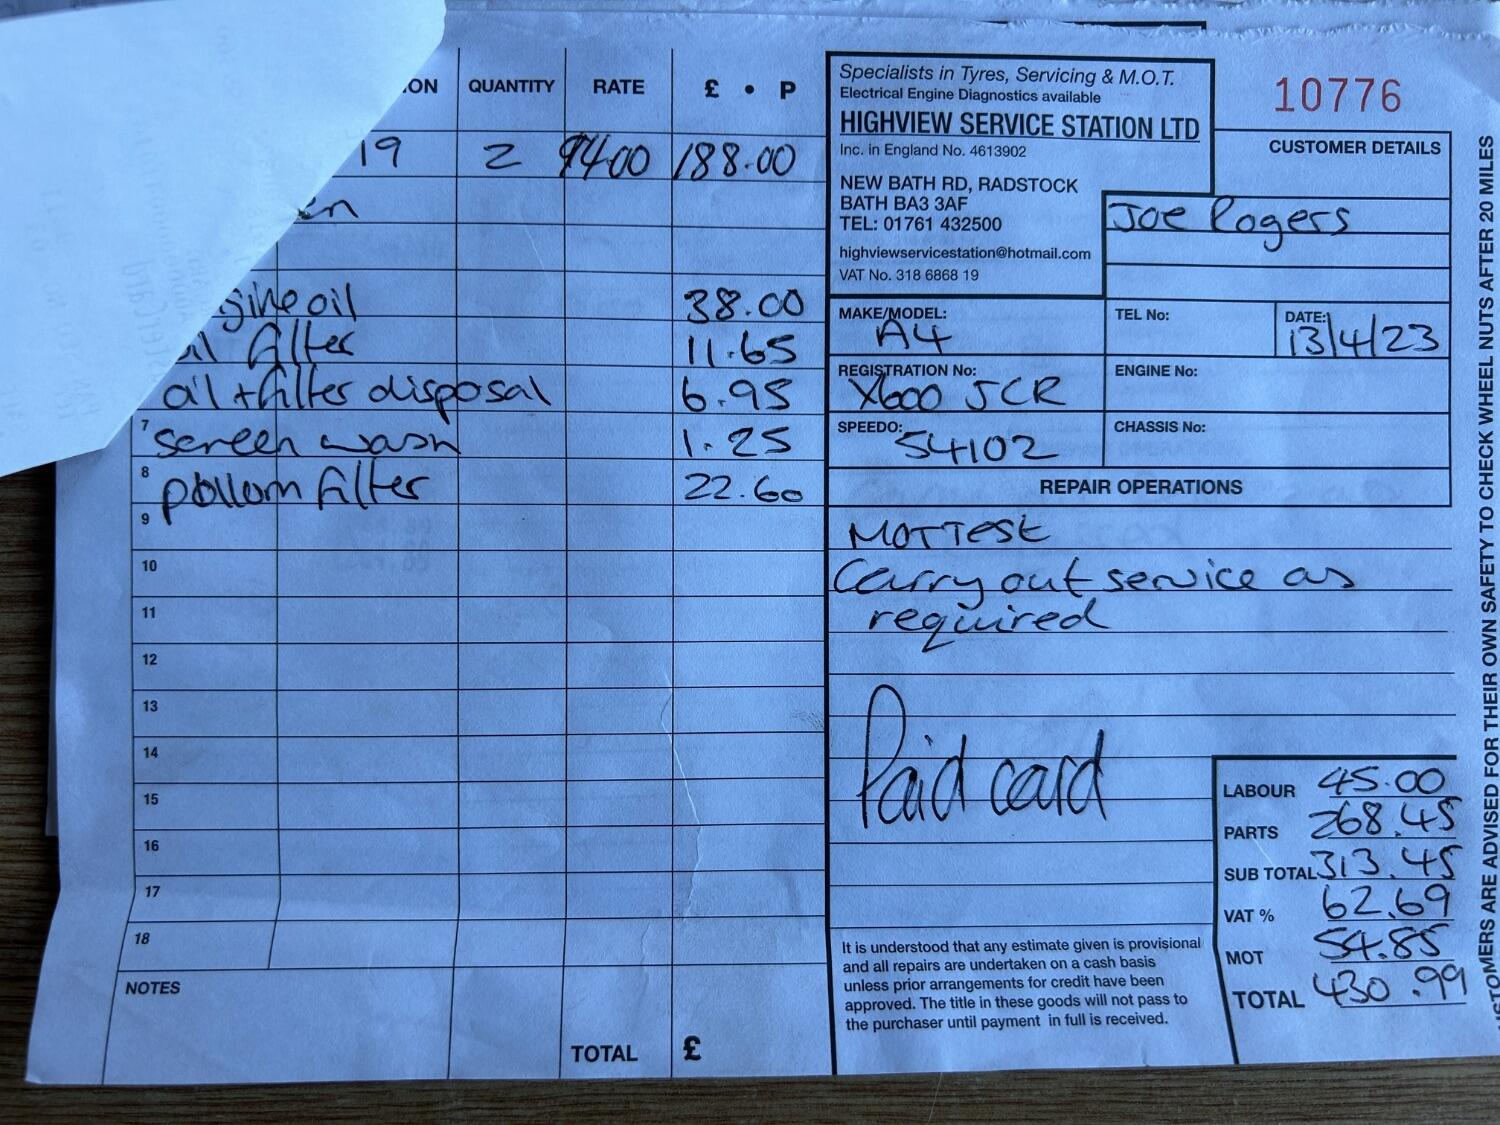 QUANTITY RATE £ • P
19 2 94.00 188.00
38.00
filter 11.65
oil + filter disposal 6.95
7 screen wash 1.25
8 pollom filter 22.60
9
10
11
12
13
14
15
16
17
18
NOTES
TOTAL £
Specialists in Tyres, Servicing & M.O.T.
Electrical Engine Diagnostics available
HIGHVIEW SERVICE STATION LTD
Inc. in England No. 4613902
NEW BATH RD, RADSTOCK
BATH BA3 3AF
TEL: 01761 432500
highviewservicestation@hotmail.com
VAT No. 318 6868 19
10776
CUSTOMER DETAILS
Joe Rogers
MAKE/MODEL: A4
TEL No:
DATE: 13/4/23
REGISTRATION No: X600 JCR
ENGINE No:
SPEEDO: 54102
CHASSIS No:
REPAIR OPERATIONS
MOT TEST
Carry out service as
required
Paid card
LABOUR 45.00
PARTS 268.45
SUB TOTAL 313.45
VAT % 62.69
MOT 54.85
TOTAL 430.99
It is understood that any estimate given is provisional
and all repairs are undertaken on a cash basis
unless prior arrangements for credit have been
approved. The title in these goods will not pass to
the purchaser until payment in full is received.
CUSTOMERS ARE ADVISED FOR THEIR OWN SAFETY TO CHECK WHEEL NUTS AFTER 20 MILES